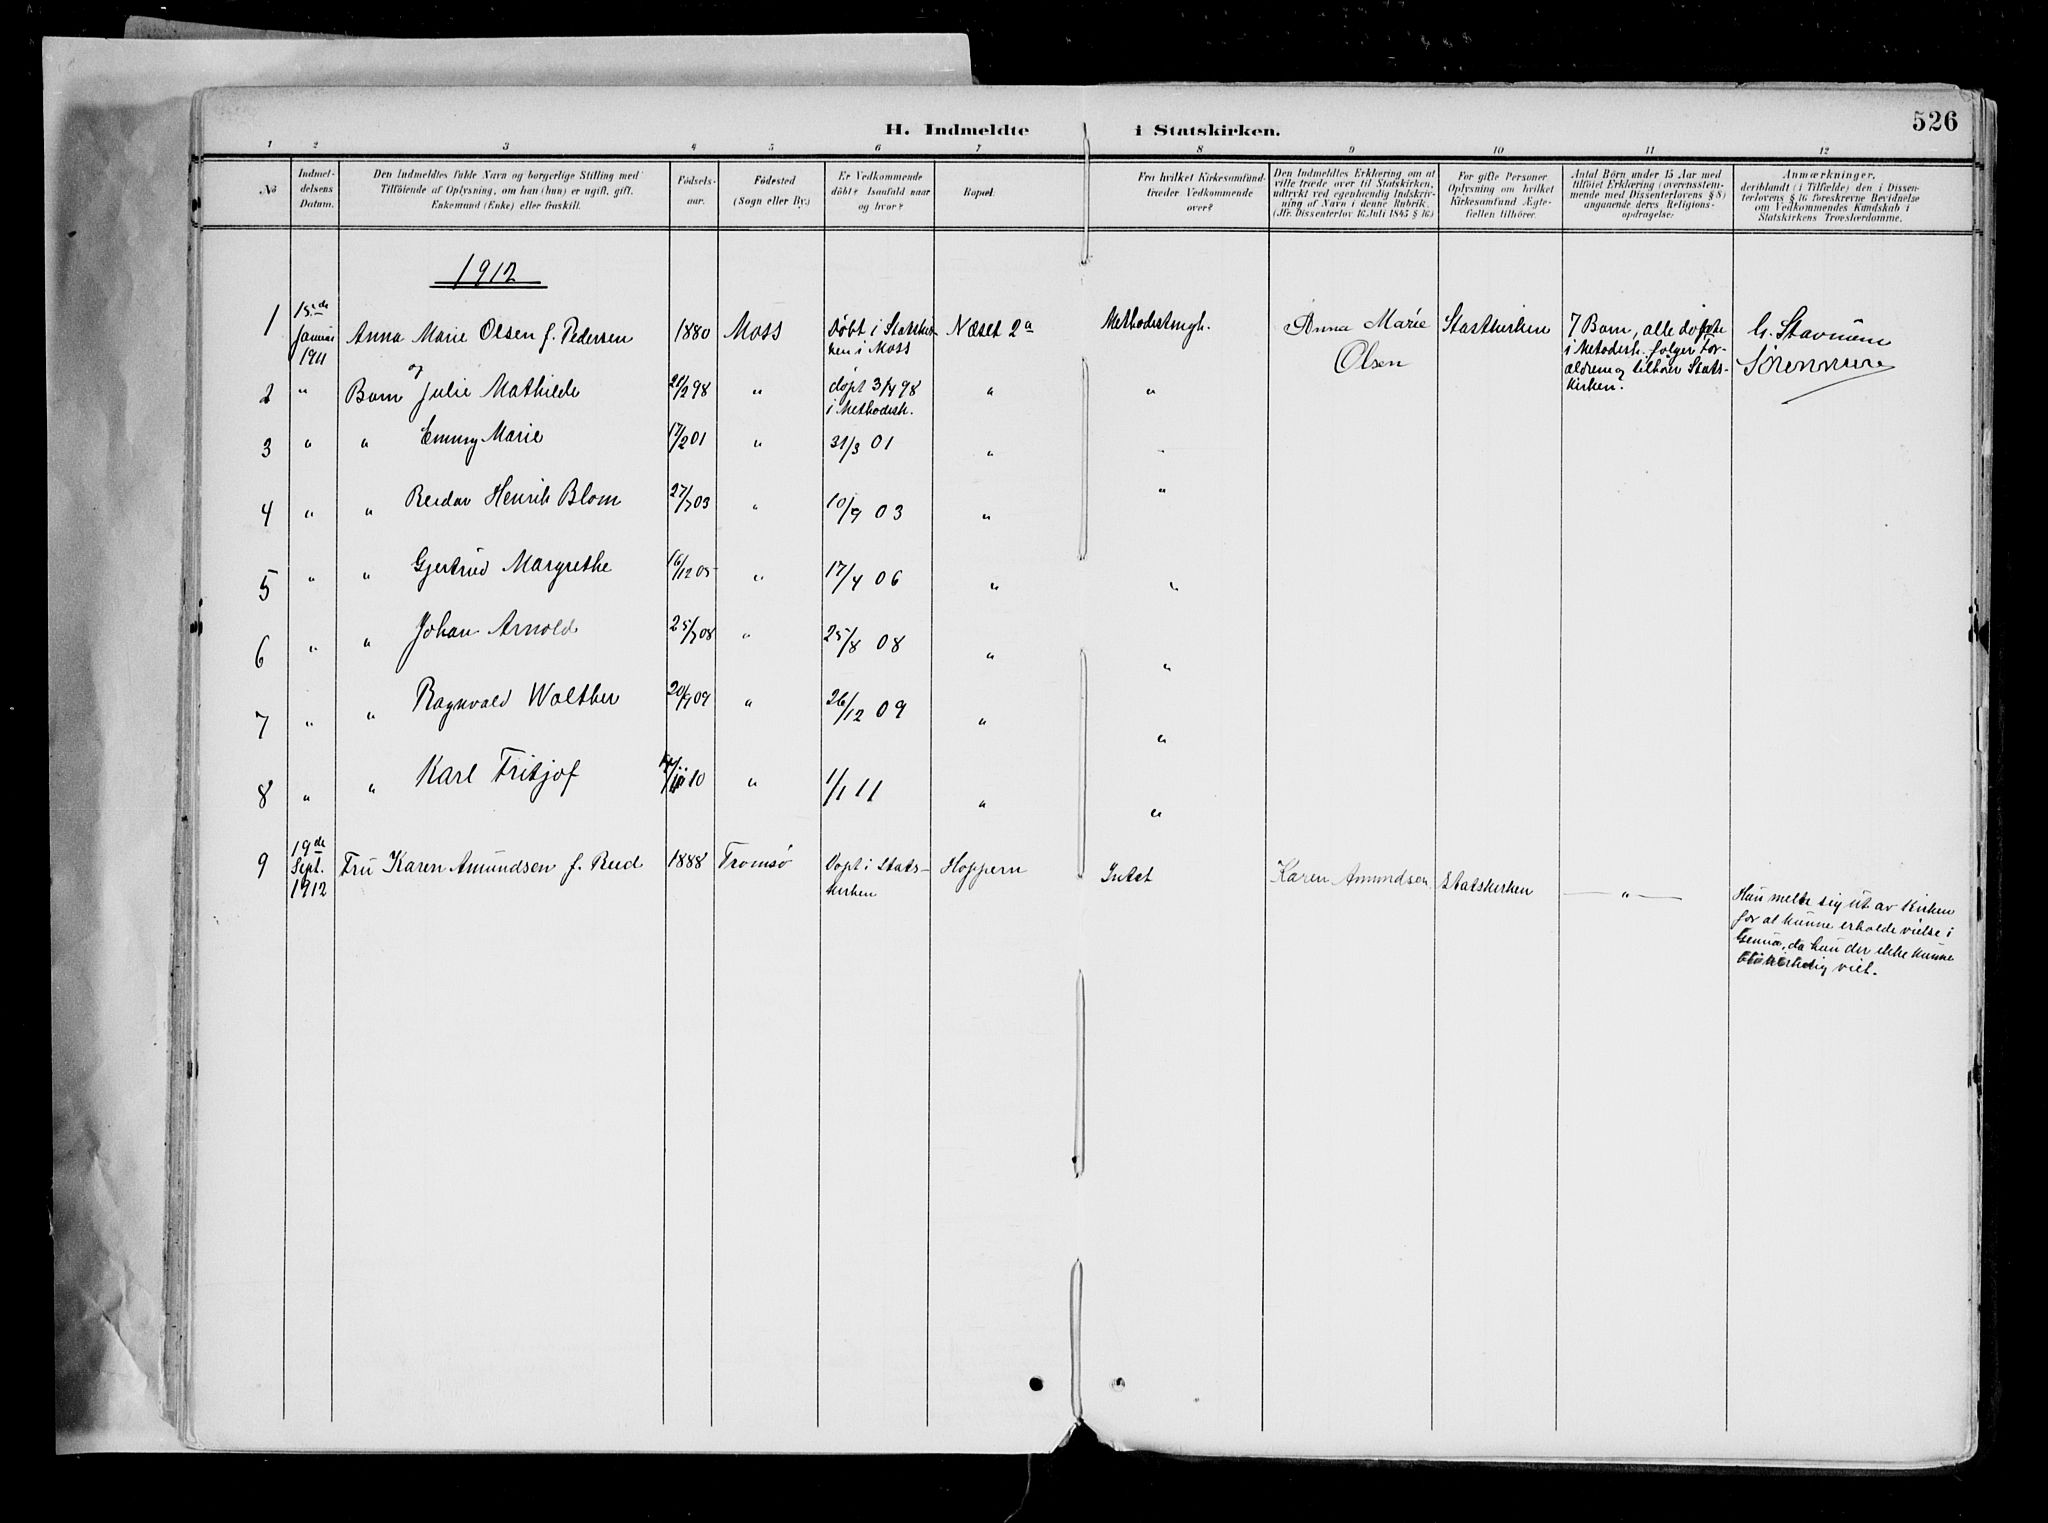 H. Indmeldte i Statskirken.
526
1 2 3 4 5 6 7 8 9 10 11 12
No
Indmel-
delsens
Datum.
Den Indmeldtes fulde Navn og borgerlige Stilling med
Tilföiende af Oplysning, om han (hun) er ugift, gift,
Enkemand (Enke) eller fraskilt.
Födsels-
aar.
Födested
(Sogn eller By.)
Er Vedkommende
döbt? Isaafald naar
og hvor?
Bopæl.
Fra hvilket Kirkesamfund
træder Vedkommende
over?
Den Indmeldtes Erklæring, om at
ville træde over til Statskirken,
udtrykt ved egenhændig Indskriv-
ning af Navn i denne Rubrik.
(Jfr. Dissenterlov 16 Juli 1845 § 16)
For gifte Personer
Oplysning om hvilket
Kirkesamfund Ægte-
fællen tilhörer.
Antal Börn under 15 Aar med
tilföiet Erklæring (overensstem-
mende med Dissenterlovens § 8)
angaaende deres Religions-
opdragelse:
Anmærkninger,
deriblandt (i Tilfælde) den i Dissen-
terlovens § 16 foreskrevne Bevidnelse
om Vedkommendes Kundskab i
Statskirkens Troeslærdomme.
1912
1
15de
Januar
1911
Anna Marie Olsen f. Pedersen
1880
Moss
Døbt i Statskir
ken i Moss
Næset 2a
Methodistmgh.
Anna Marie
Olsen
Statskirken
7 Barn, alle døpte
i Metodisk. følger For-
ældrene og tilhører Stats-
kirken.
Sörensen
2 "
og
Barn Julie Mathilde 21/2 98 "
døpt 3/4 98
i Methodisk.
" "
3 " " Emmy Marie 17/2 01 " 31/3 01 " "
4 " " Reidar Henrik Blom 27/7 03 " 10/9 03 " "
5 " " Gjertrud Margrethe 16/12 05 " 17/4 06 " "
6 " " Johan Arnold 25/7 08 " 25/8 08 " "
7 " " Ragnvald Walther 20/9 09 " 26/12 09 " "
8 " " Karl Fritjof 10 " 1/1 11 " "
9
19de
Sept.
1912
Fru Karen Amundsen f. Rud
1888
Tromsø
Døpt i Stats-
kirken
Hoppern
Intet
Karen Amundsen
Statskirken
— " —
Hun meldte sig ut av Kirken
for at kunne erholde vielse i
Genua, da hun der ikke kunne
kirkelig viet.